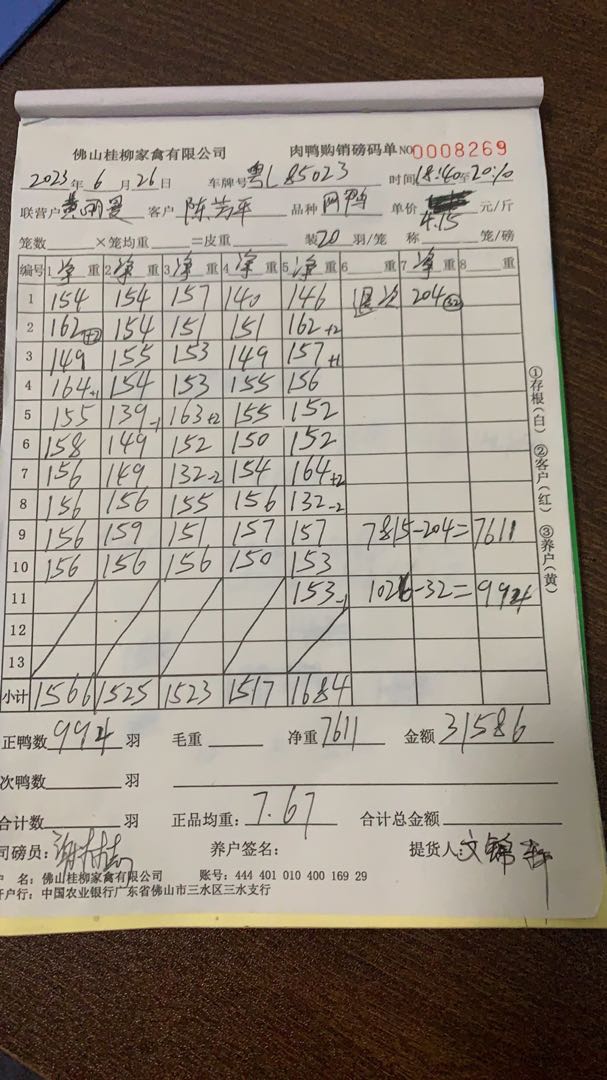 佛山桂柳家禽有限公司 肉鸭购销磅码单 NO 0008269
2023年6月26日 车牌号 粤L85023 时间 18:40至20:10
联营户 客户 陈 品种 单价 4.15 元/斤
笼数 ×笼均重 =皮重 装20羽/笼 称 笼/磅
编号 1净重 2净重 3净重 4净重 5净重 6 重 7净重 8 重
1 154 154 157 140 146 退次 204(32)
2 162+2 154 151 151 162+2
3 149 155 153 149 157+1
4 164+1 154 153 155 156
5 155 139-1 163+2 155 152
6 158 149 152 150 152
7 156 149 132-2 154 164+2
8 156 156 155 156 132-2
9 156 159 151 157 157 7815-204=7611
10 156 156 156 150 153
11 153-1 1026-32=994
12
13
小计 1566 1525 1523 1517 1684
正鸭数 994 羽 毛重 净重 7611 金额 31586
次鸭数 羽
合计数 羽 正品均重: 7.67 合计总金额
司磅员: 养户签名: 提货人: 文锦
户 名: 佛山桂柳家禽有限公司 账号: 444 401 010 400 169 29
开户行: 中国农业银行广东省佛山市三水区三水支行
①存根(白) ②客户(红) ③养户(黄)